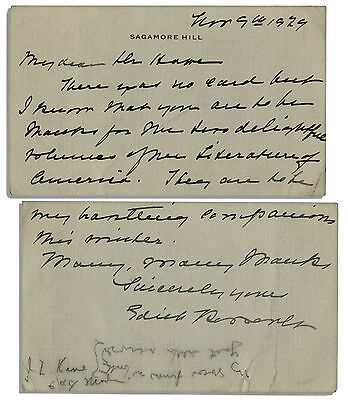 Nov 9th 1929
SAGAMORE HILL
My dear Mr Howe
There was no card but
I know that you are to be
thanked for the two delightful
volumes of the Literature of
America. They are to be
my constant companions
this winter.
Many, many thanks
Sincerely yours
Edith Roosevelt
J Z